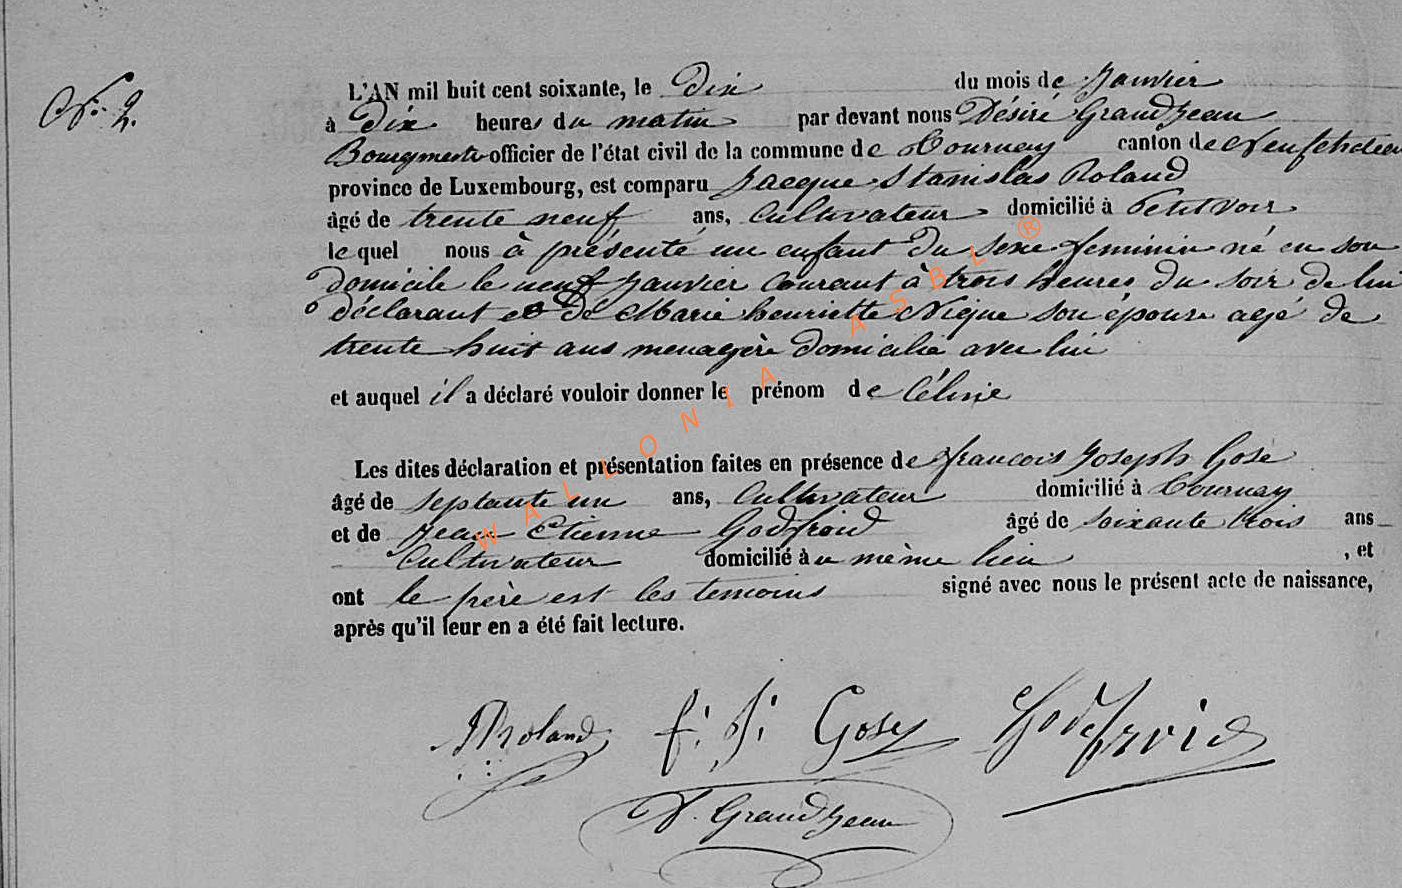 No. 2.
L'AN mil huit cent soixante, le Dix du mois de Janvier
à Dix heures du matin par devant nous Désiré Grandjean
Bourgmestre officier de l'état civil de la commune de Tournay canton de Neufchateau
province de Luxembourg, est comparu Jacque Stanislas Roland
âgé de trente neuf ans, Cultivateur domicilié à Petitvoir
le quel nous à présenté un enfant du sexe feminin né en son
domicile le neuf Janvier courant à trois heures du soir de lui
déclarant et de Marie henriette Nique son épouse agé de
trente huit ans menagère domicilié avec lui
et auquel il a déclaré vouloir donner le prénom de Céline
Les dites déclaration et présentation faites en présence de francois Joseph Gose
âgé de septante un ans, Cultivateur domicilié à Tournay
et de Jean Etienne Godfroid âgé de soixante trois ans
Cultivateur domicilié au même lieu , et
ont le père est les temoins signé avec nous le présent acte de naissance,
après qu'il leur en a été fait lecture.
Roland f. J. Gosey Godefroid
D. Grandjean
WALLONIA ASBL ®